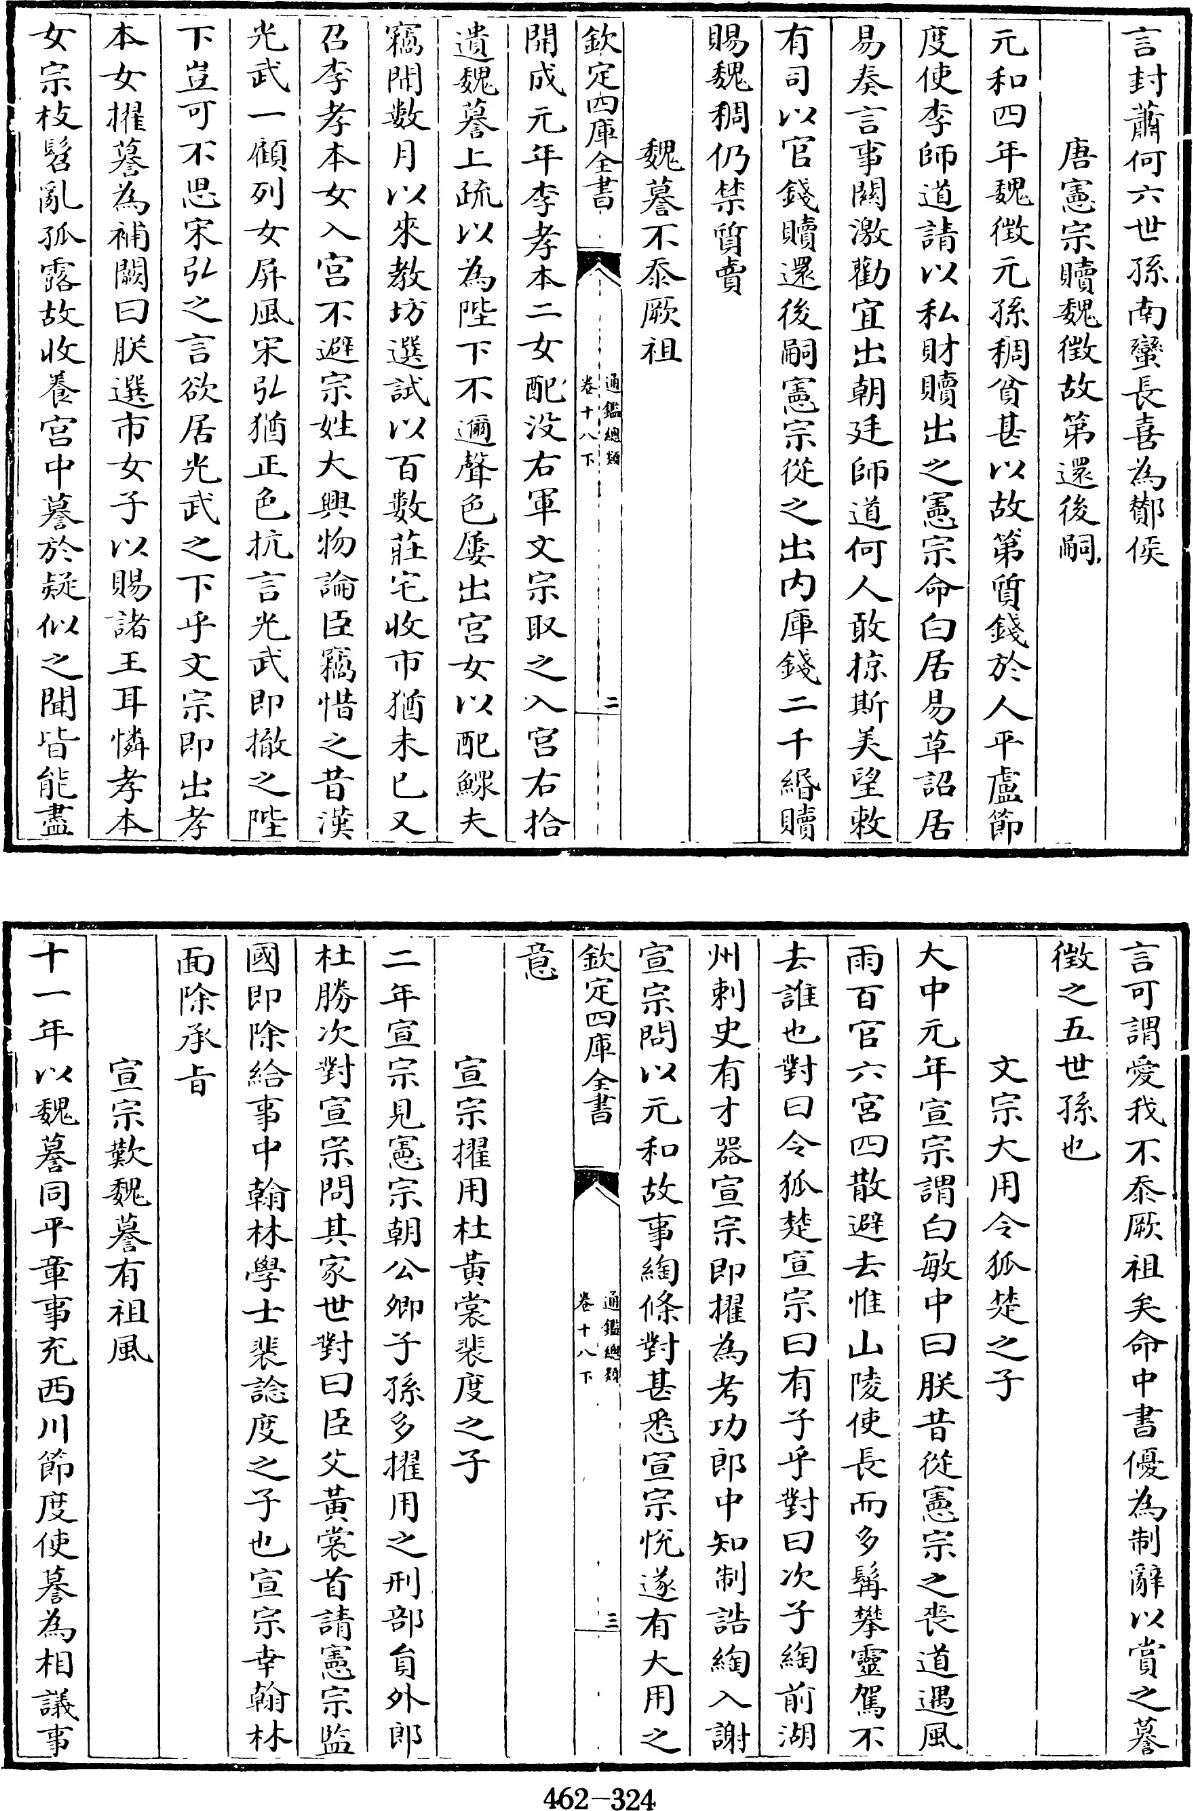 言封蕭何六世孫南䜌長喜為酇侯
唐憲宗贖魏徵故第還後嗣
元和四年魏徵元孫稠貧甚以故第質錢於人平盧節
度使李師道請以私財贖出之憲宗命白居易草詔居
易奏言事關激勸宜出朝廷師道何人敢掠斯美望敕
有司以官錢贖還後嗣憲宗從之出内庫錢二千緡贖
賜魏稠仍禁質賣
魏謩不忝厥祖
欽定四庫全書
通鑑總類
卷十八下
二
開成元年李孝本二女配没右軍文宗取之入宮右拾
遺魏謩上疏以為陛下不邇聲色屢出宮女以配鰥夫
竊聞數月以來教坊選試以百數莊宅收市猶未已又
召李孝本女入宮不避宗姓大興物論臣竊惜之昔漢
光武一顧列女屏風宋弘猶正色抗言光武即撤之陛
下豈可不思宋弘之言欲居光武之下乎文宗即出孝
本女擢謩為補闕曰朕選市女子以賜諸王耳憐孝本
女宗枝髫亂孤露故收養宮中謩於疑似之間皆能盡
言可謂愛我不忝厥祖矣命中書優為制辭以賞之謩
徵之五世孫也
文宗大用令狐楚之子
大中元年宣宗謂白敏中曰朕昔從憲宗之喪道遇風
雨百官六宮四散避去惟山陵使長而多髯攀靈駕不
去誰也對曰令狐楚宣宗曰有子乎對曰次子綯前湖
州刺史有才器宣宗即擢為考功郎中知制誥綯入謝
宣宗問以元和故事綯條對甚悉宣宗悅遂有大用之
欽定四庫全書
通鑑總類
卷十八下
三
意
宣宗擢用杜黄裳裴度之子
二年宣宗見憲宗朝公卿子孫多擢用之刑部員外郎
杜勝次對宣宗問其家世對曰臣父黄裳首請憲宗監
國即除給事中翰林學士裴諗度之子也宣宗幸翰林
面除承旨
宣宗歎魏謩有祖風
十一年以魏謩同平章事充西川節度使謩為相議事
462-324